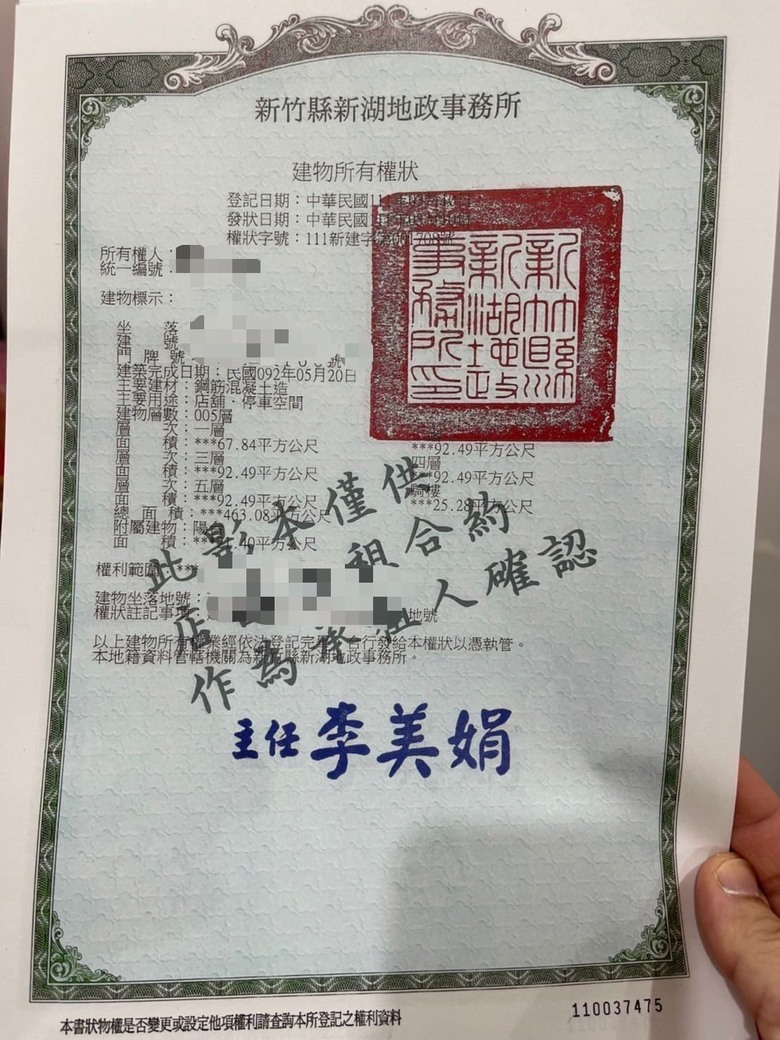 新竹縣新湖地政事務所
建物所有權狀
登記日期：中華民國111
發狀日期：中華民國
權狀字號：111新建字
新竹縣
新湖地政
事務所印
所有權人：
統一編號：
建物標示：
坐落
建號
門牌號 號
建築完成日期：民國092年05月20日
主要建材：鋼筋混凝土造
主要用途：店舖．停車空間
建物層數：005層
層次：一層
面積：***67.84平方公尺 ***92.49平方公尺
層次：三層 四層
面積：***92.49平方公尺 ***92.49平方公尺
層次：五層 騎樓
面積：***92.49平方公尺 ***25.28平方公尺
總面積：***463.08平方公尺
附屬建物：陽
面積：*** 平方公尺
權利範圍：***
建物坐落地號：
權狀註記事項： 地號
以上建物所有 業經依法登記完 合行發給本權狀以憑執管。
本地籍資料管轄機關為新竹縣新湖地政事務所。
此影本僅供
店 租合約
作為承租人確認
主任李美娟
本書狀物權是否變更或設定他項權利請查詢本所登記之權利資料
110037475